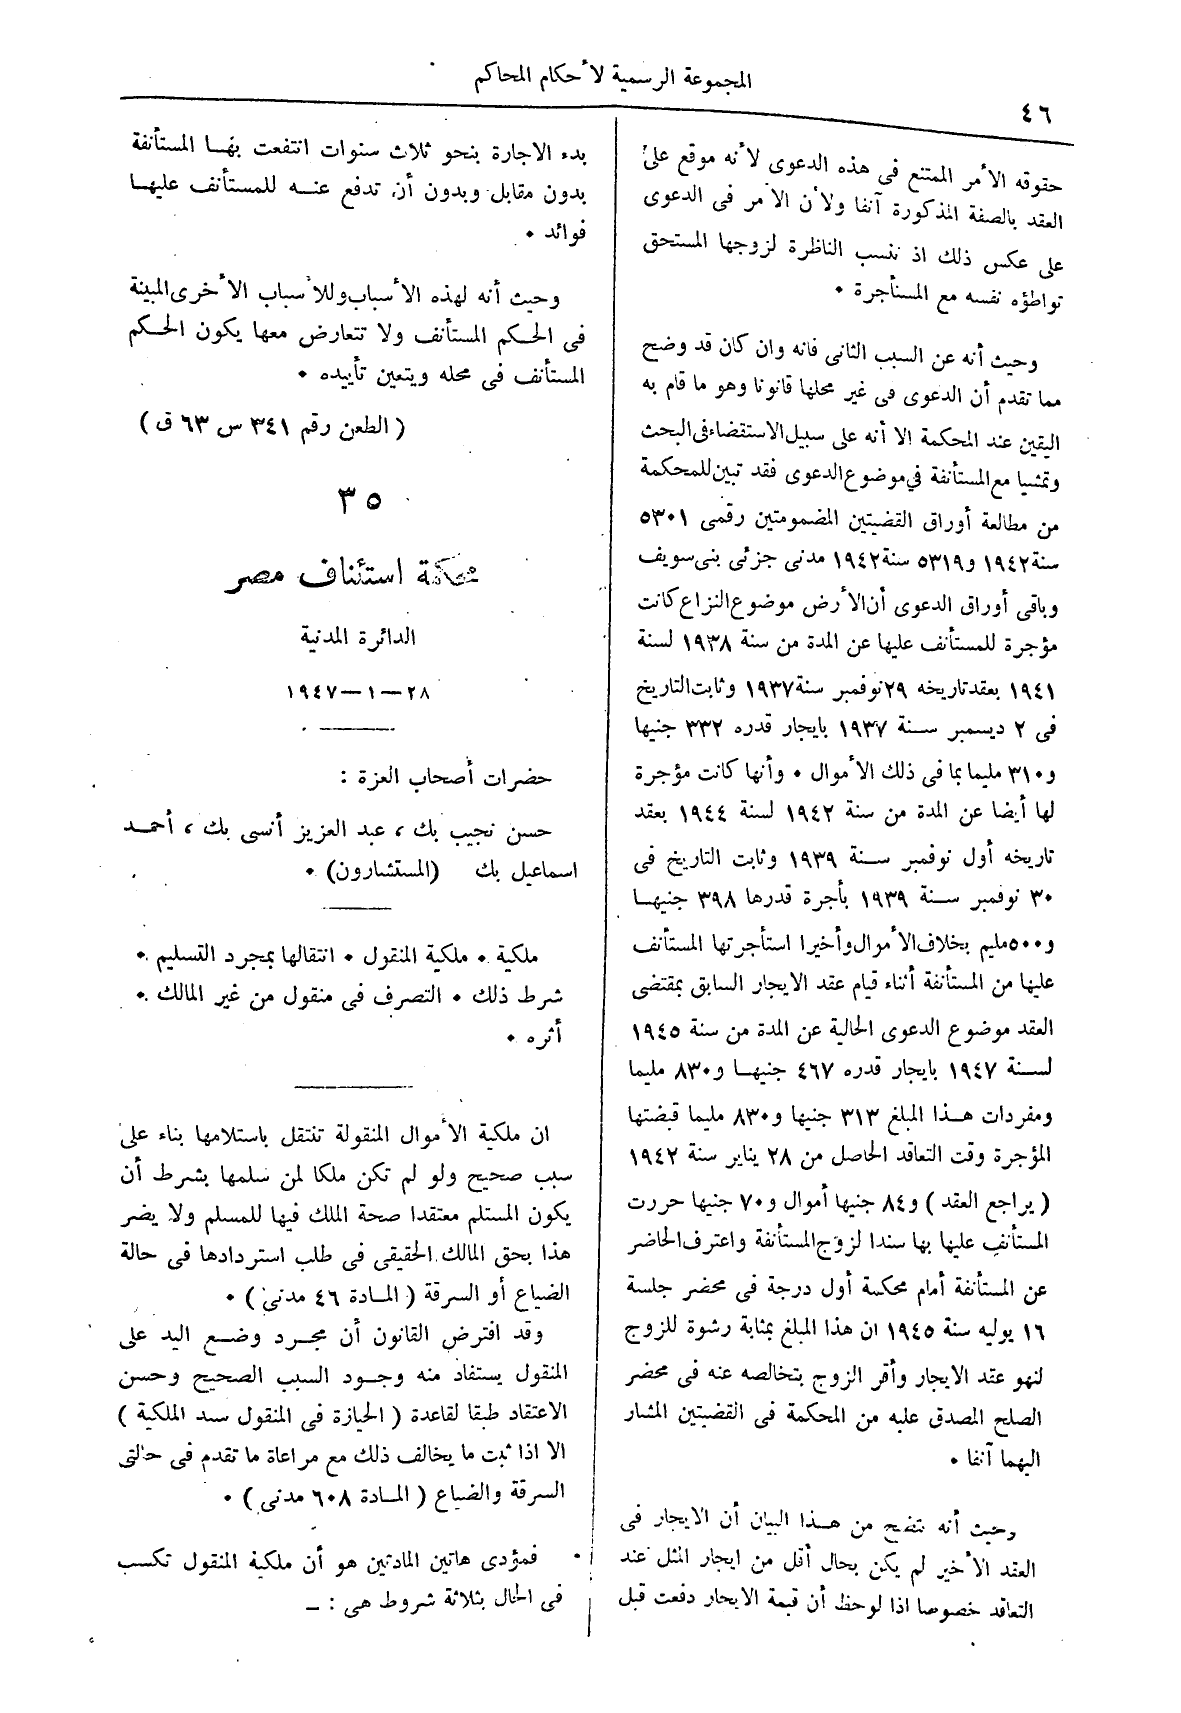 المجموعة الرسمية لأحكام المحاكم
٤٦
حقوقه الأمر الممتنع فى هذه الدعوى لأنه موقع على
العقد بالصفة المذكورة آنفا ولأن الأمر فى الدعوى
على عكس ذلك اذ تنسب الناظرة لزوجها المستحق
تواطؤه نفسه مع المستأجرة •
وحيث أنه عن السبب الثانى فانه وان كان قد وضح
مما تقدم أن الدعوى فى غير محلها قانونا وهو ما قام به
اليقين عند المحكمة الا أنه على سبيل الاستقضاء فى البحث
وتمشيا مع المستأنفة في موضوع الدعوى فقد تبين للمحكمة
من مطالعة أوراق القضيتين المضمومتين رقمى ٥٣٠١
سنة ١٩٤٢ و٥٣١٩ سنة ١٩٤٢ مدنى جزئى بنى سويف
وباقى أوراق الدعوى أن الأرض موضوع النزاع كانت
مؤجرة للمستأنف عليها عن المدة من سنة ١٩٣٨ لسنة
١٩٤١ بعقد تاريخه ٢٩ نوفمبر سنة ١٩٣٧ وثابت التاريخ
فى ٢ ديسمبر سنة ١٩٣٧ بايجار قدره ٣٣٢ جنيها
و٣١٠ مليما بما فى ذلك الأموال • وأنها كانت مؤجرة
لها أيضا عن المدة من سنة ١٩٤٢ لسنة ١٩٤٤ بعقد
تاريخه أول نوفمبر سنة ١٩٣٩ وثابت التاريخ فى
٣٠ نوفمبر سنة ١٩٣٩ بأجرة قدرها ٣٩٨ جنيها
و٥٠٠ مليم بخلاف الأموال وأخيرا استأجرتها المستأنف
عليها من المستأنفة أثناء قيام عقد الايجار السابق بمقتضى
العقد موضوع الدعوى الحالية عن المدة من سنة ١٩٤٥
لسنة ١٩٤٧ بايجار قدره ٤٦٧ جنيها و٨٣٠ مليما
ومفردات هذا المبلغ ٣١٣ جنيها و٨٣٠ مليما قبضتها
المؤجرة وقت التعاقد الحاصل من ٢٨ يناير سنة ١٩٤٢
( يراجع العقد ) و٨٤ جنيها أموال و٧٠ جنيها حررت
المستأنف عليها بها سندا لزوج المستأنفة واعترف الحاضر
عن المستأنفة أمام محكمة أول درجة فى محضر جلسة
١٦ يوليه سنة ١٩٤٥ ان هذا المبلغ بمثابة رشوة للزوج
لنهو عقد الايجار وأقر الزوج بتخالصه عنه فى محضر
الصلح المصدق عليه من المحكمة فى القضيتين المشار
اليهما آنفا •
وحيث أنه تتضح من هذا البيان أن الايجار فى
العقد الأخير لم يكن بحال أقل من ايجار المثل عند
التعاقد خصوصا اذا لوحظ أن قيمة الايجار دفعت قبل
بدء الاجارة بنحو ثلاث سنوات انتفعت بها المستأنفة
بدون مقابل وبدون أن تدفع عنه للمستأنف عليها
فوائد •
وحيث أنه لهذه الأسباب وللأسباب الأخرى المبينة
فى الحكم المستأنف ولا تتعارض معها يكون الحكم
المستأنف فى محله ويتعين تأييده •
( الطعن رقم ٣٤١ س ٦٣ ق )
٣٥
محكمة استئناف مصر
الدائرة المدنية
٢٨-١-١٩٤٧
حضرات أصحاب العزة :
حسن نجيب بك ، عبد العزيز أنسى بك ، أحمد
اسماعيل بك (المستشارون) •
ملكية • ملكية المنقول • انتقالها بمجرد التسليم •
شرط ذلك • التصرف فى منقول من غير المالك •
أثره •
ان ملكية الأموال المنقولة تنتقل باستلامها بناء على
سبب صحيح ولو لم تكن ملكا لمن سلمها بشرط أن
يكون المستلم معتقدا صحة الملك فيها للمسلم ولا يضر
هذا بحق المالك الحقيقى فى طلب استردادها فى حالة
الضياع أو السرقة ( المادة ٤٦ مدنى ) •
وقد افترض القانون أن مجرد وضع اليد على
المنقول يستفاد منه وجود السبب الصحيح وحسن
الاعتقاد طبقا لقاعدة ( الحيازة فى المنقول سند الملكية )
الا اذا ثبت ما يخالف ذلك مع مراعاة ما تقدم فى حالتى
السرقة والضياع ( المادة ٦٠٨ مدنى ) •
فمؤدى هاتين المادتين هو أن ملكية المنقول تكسب
فى الحال بثلاثة شروط هى : ـ